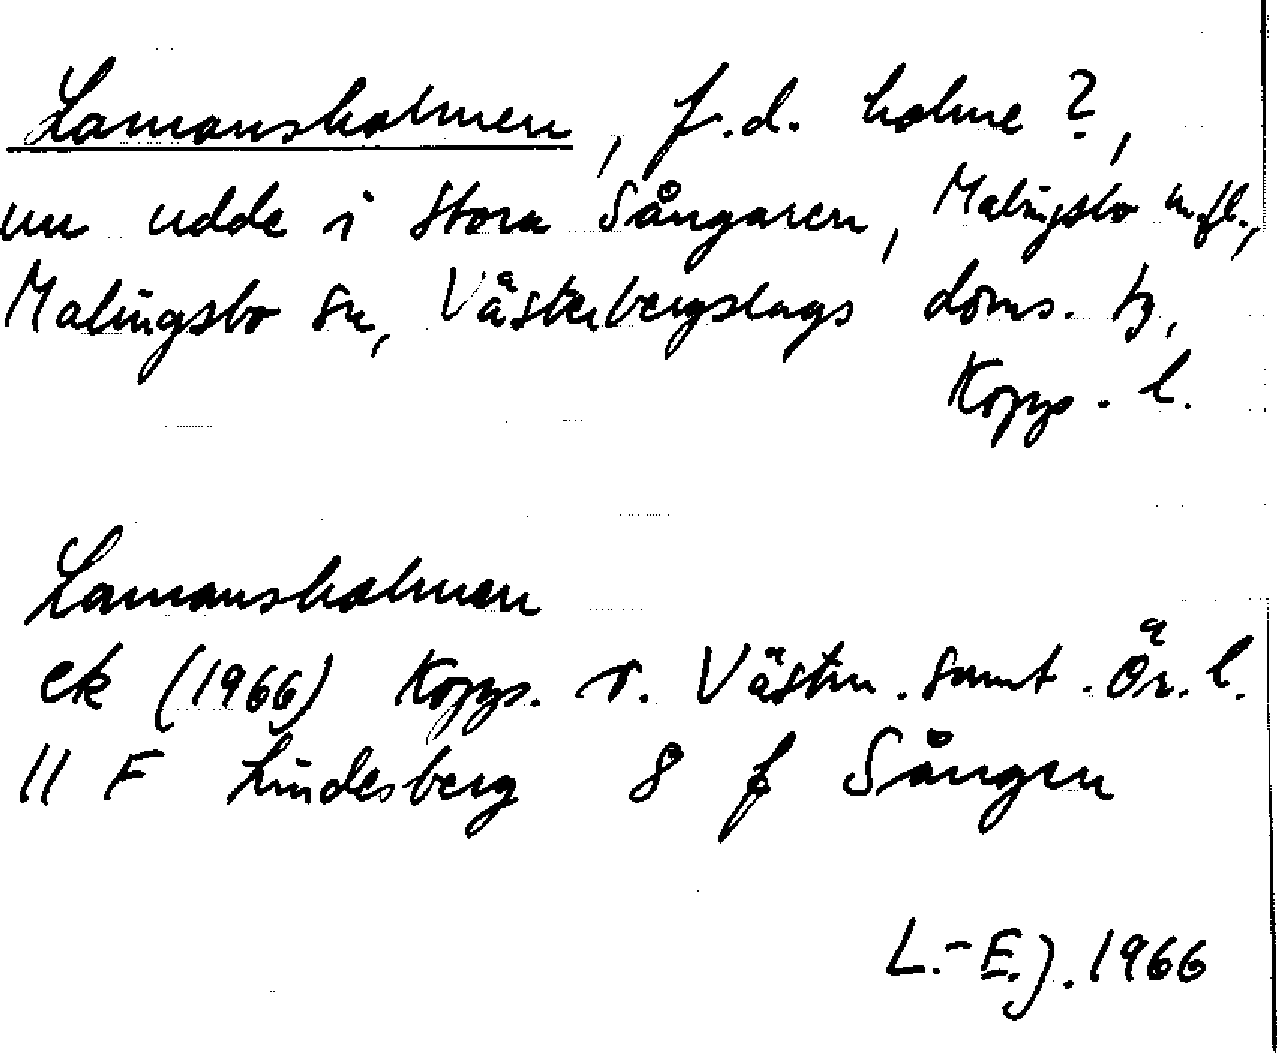 Lamansholmen, f.d. holme?,
nu udde i Stora Sångaren, Malingsbo m.fl.,
Malingsbo sn, Västerbergslags doms. tg,
Kopp. l.
Lamansholmen
ek (1966) Kopps. o. Västm. samt. Ör. l.
11 F Lindesberg 8 f Sången
L.-E.J. 1966